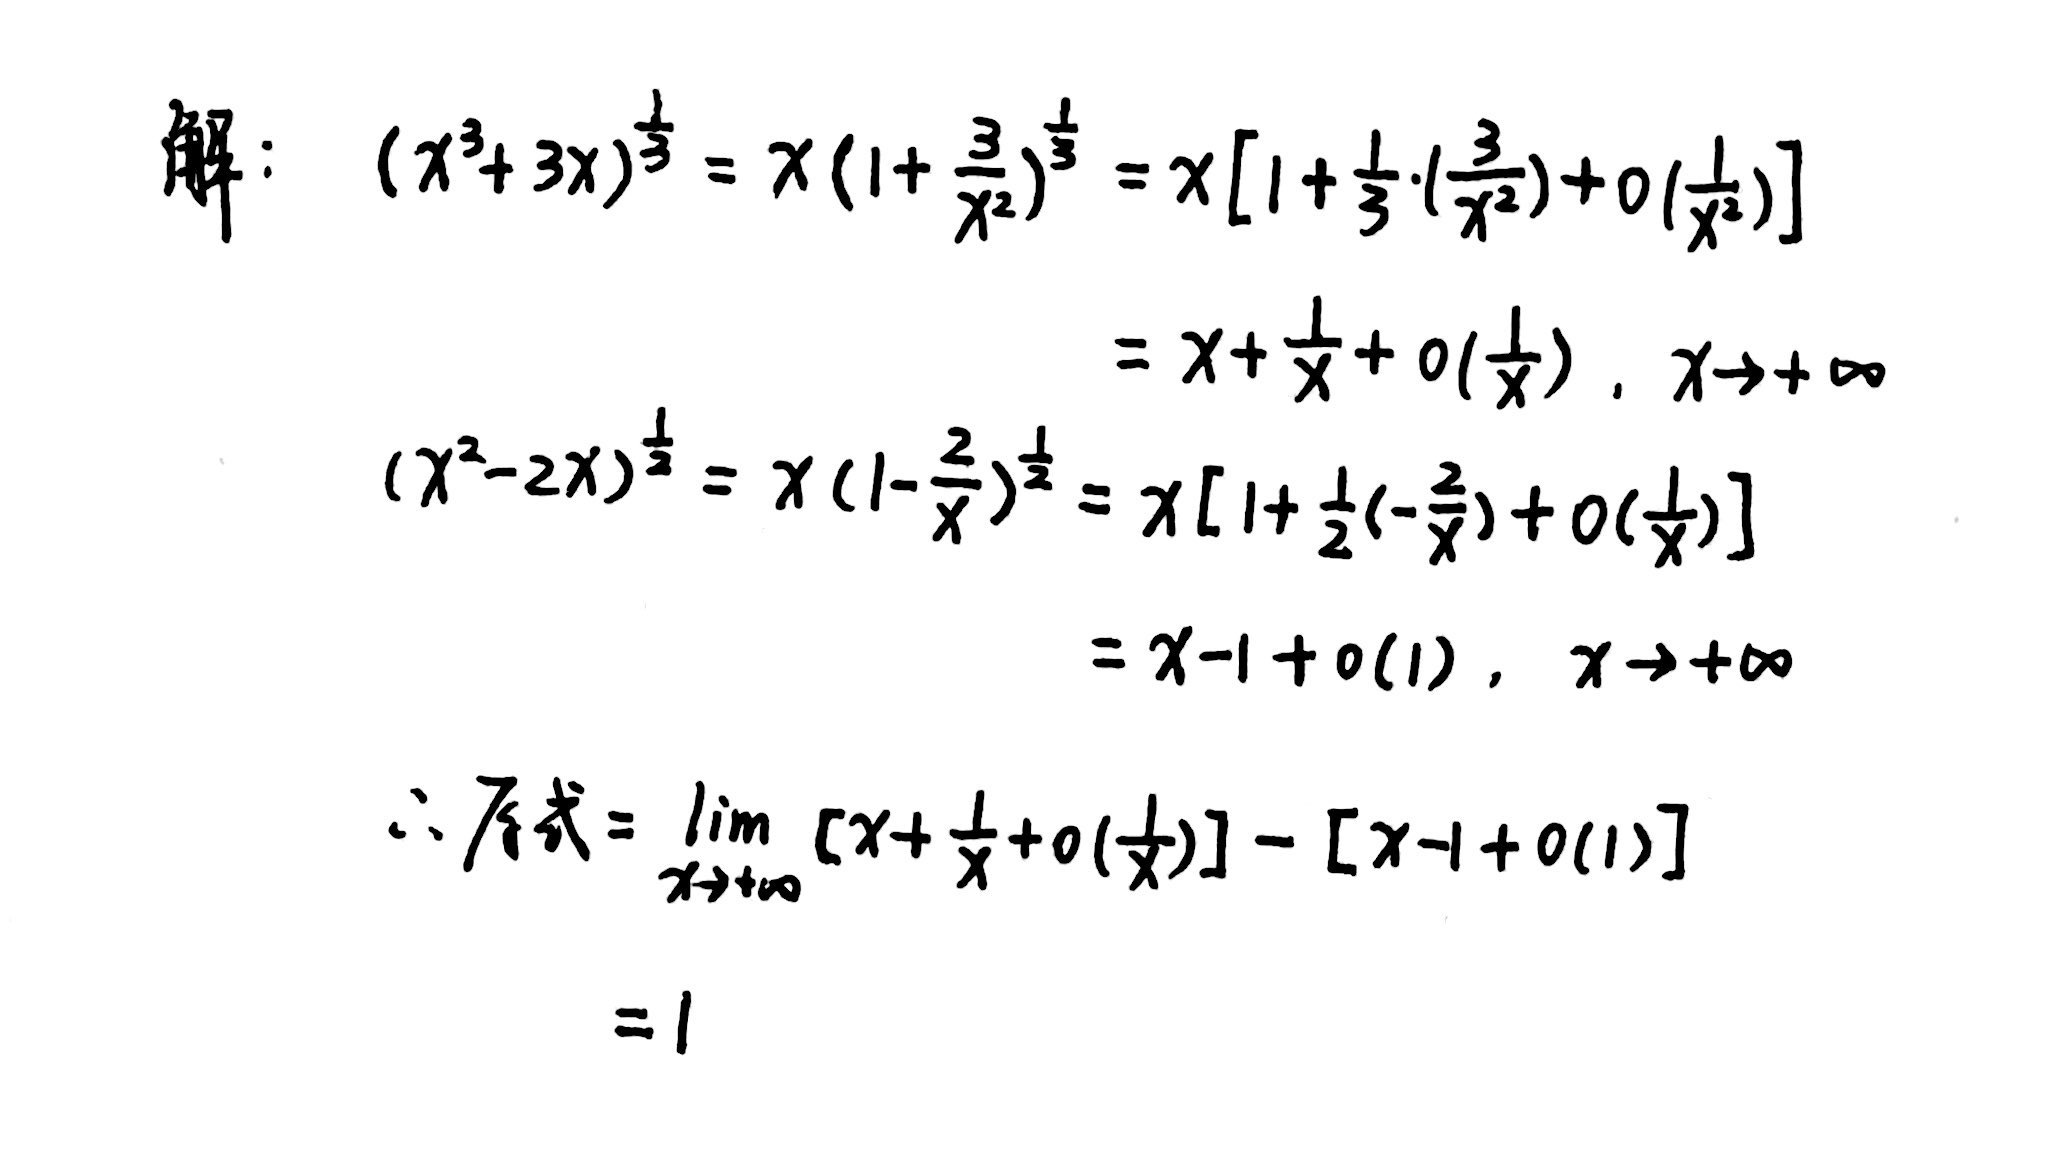 解: (x³+3x)^{1/3} = x(1+3/x²)^{1/3} = x[1+1/3·(3/x²)+o(1/x²)]
= x+1/x+o(1/x), x→+∞
(x²-2x)^{1/2} = x(1-2/x)^{1/2} = x[1+1/2(-2/x)+o(1/x)]
= x-1+o(1), x→+∞
∴原式= lim_{x→+∞} [x+1/x+o(1/x)]-[x-1+o(1)]
=1